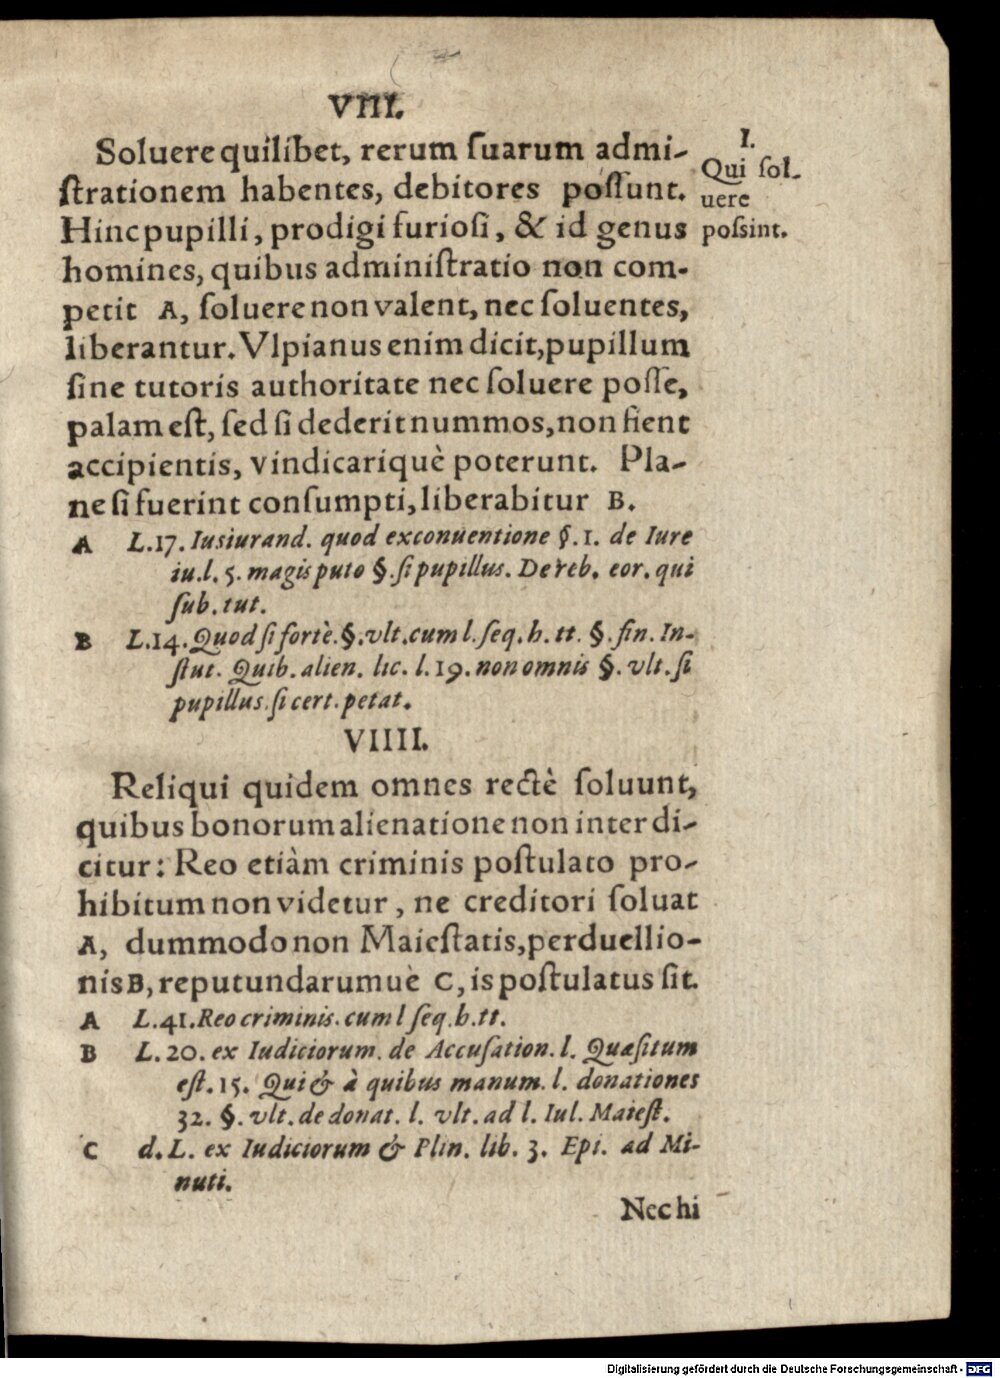 VIII.
Soluere quilibet, rerum ſuarum admi-
ſtrationem habentes, debitores poſſunt.
Hinc pupilli, prodigi furioſi, & id genus
homines, quibus adminiſtratio non com-
petit A, ſoluere non valent, nec ſoluentes,
liberantur. Vlpianus enim dicit, pupillum
ſine tutoris authoritate nec ſoluere poſſe,
palam eſt, ſed ſi dederit nummos, non fient
accipientis, vindicariquè poterunt. Pla-
ne ſi fuerint conſumpti, liberabitur B.
I.
Qui ſol-
uere
poſsint.
A L.17. Iusiurand. quod exconuentione §.1. de Iure
iu.l. 5. magis puto §. ſi pupillus. De reb. eor. qui
ſub. tut.
B L.14. Quod ſi fortè. §. vlt. cum l. ſeq. h. tt. §. fin. In-
ſtut. Quib. alien. lic. l. 19. non omnis §. vlt. ſi
pupillus. ſi cert. petat.
VIIII.
Reliqui quidem omnes rectè ſoluunt,
quibus bonorum alienatione non interdi-
citur: Reo etiàm criminis poſtulato pro-
hibitum non videtur, ne creditori ſoluat
A, dummodo non Maieſtatis, perduellio-
nis B, reputundarumuè C, is poſtulatus ſit.
A L.41. Reo criminis. cum l ſeq. h. tt.
B L. 20. ex Iudiciorum. de Accuſation. l. Quæſitum
eſt. 15. Qui & à quibus manum. l. donationes
32. §. vlt. de donat. l. vlt. ad l. Iul. Maieſt.
C d. L. ex Iudiciorum & Plin. lib. 3. Epi. ad Mi-
nuti.
Nec hi
Digitalisierung gefördert durch die Deutsche Forschungsgemeinschaft - DFG